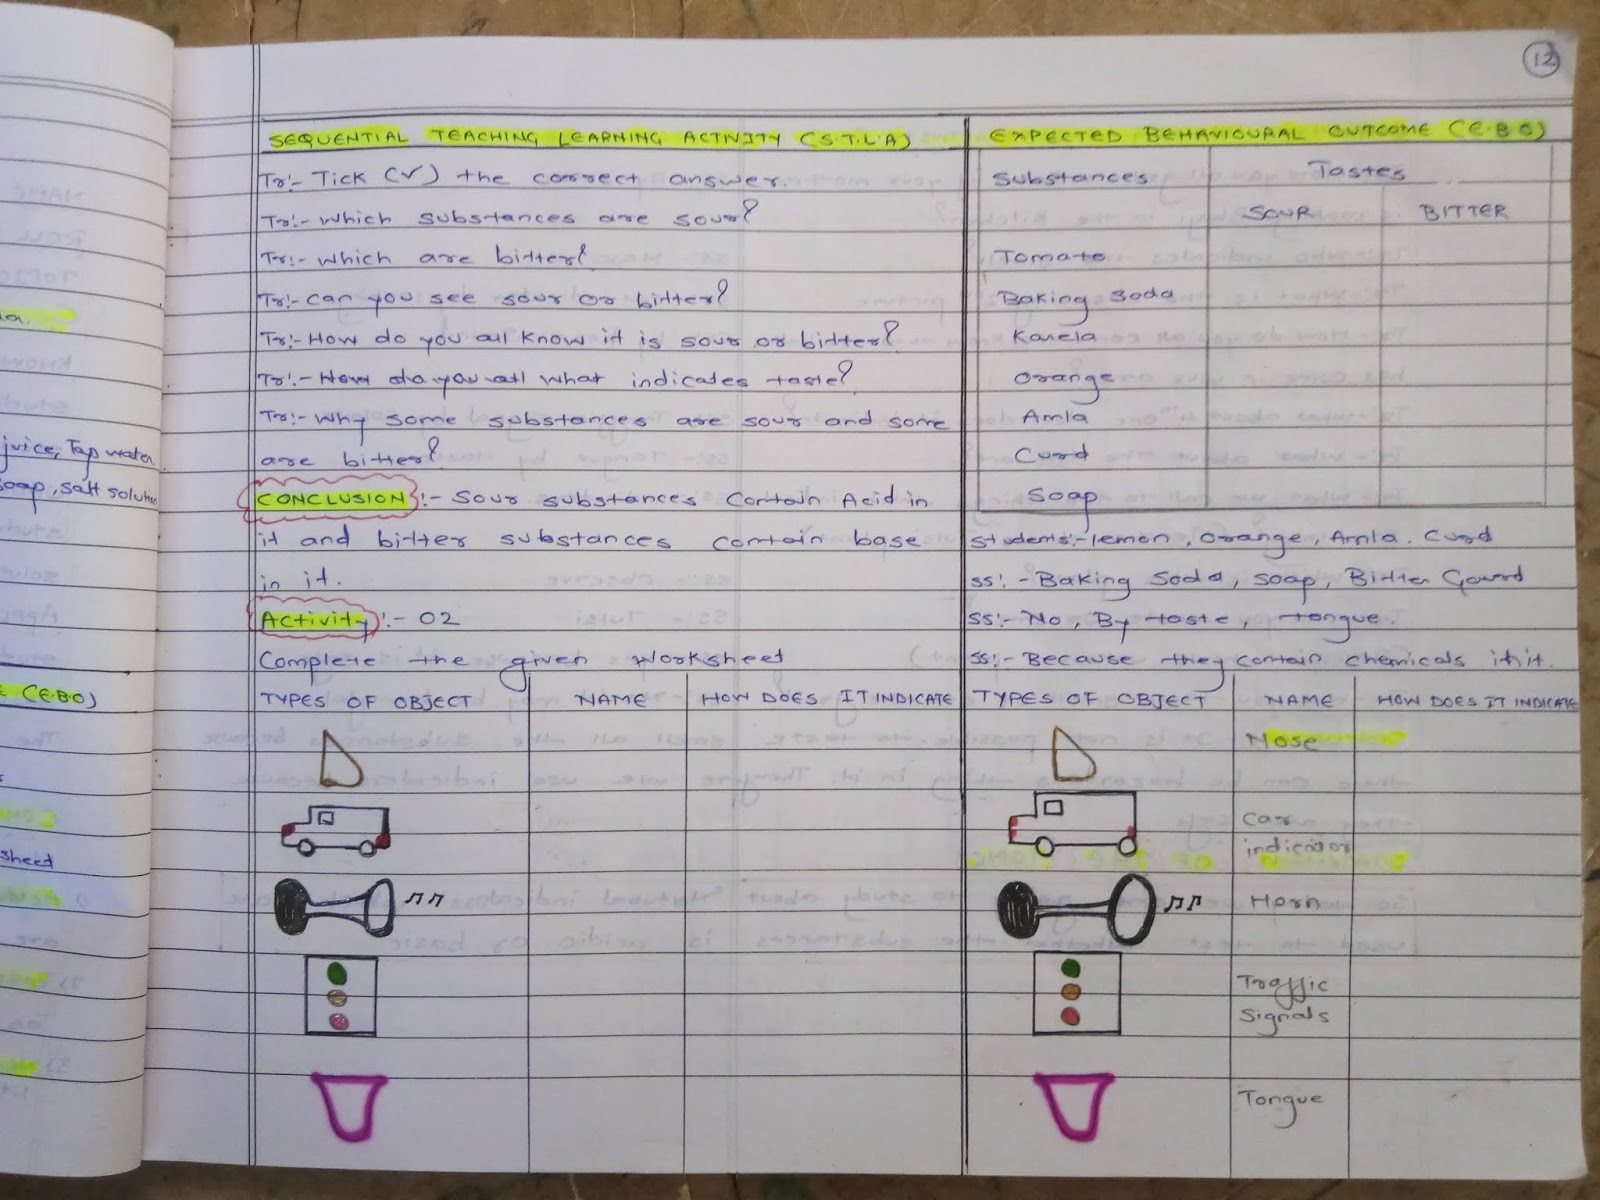 12
SEQUENTIAL TEACHING LEARNING ACTIVITY (S.T.L.A)
Tr:- Tick (✓) the correct answer.
Tr:- Which substances are sour?
Tr:- Which are bitter?
Tr:- Can you see sour or bitter?
Tr:- How do you all know it is sour or bitter?
Tr:- How do you all what indicates taste?
Tr:- Why some substances are sour and some
are bitter?
CONCLUSION :- Sour substances contain Acid in
it and bitter substances contain base
in it.
Activity :- 02
Complete the given Worksheet
TYPES OF OBJECT NAME HOW DOES IT INDICATE
EXPECTED BEHAVIOURAL OUTCOME (E.B.O)
Substances Tastes
SOUR BITTER
Tomato
Baking Soda
Karela
Orange
Amla
Curd
Soap
Students:- lemon, Orange, Amla. Curd
SS:- Baking Soda, Soap, Bitter Gourd
SS:- No, By taste, tongue.
SS:- Because they contain chemicals it it.
TYPES OF OBJECT NAME HOW DOES IT INDICATE
Nose
Car
indicator
Horn
Traffic
Signals
Tongue
juice, Tap water.
soap, salt solution
(E.B.O)
sheet